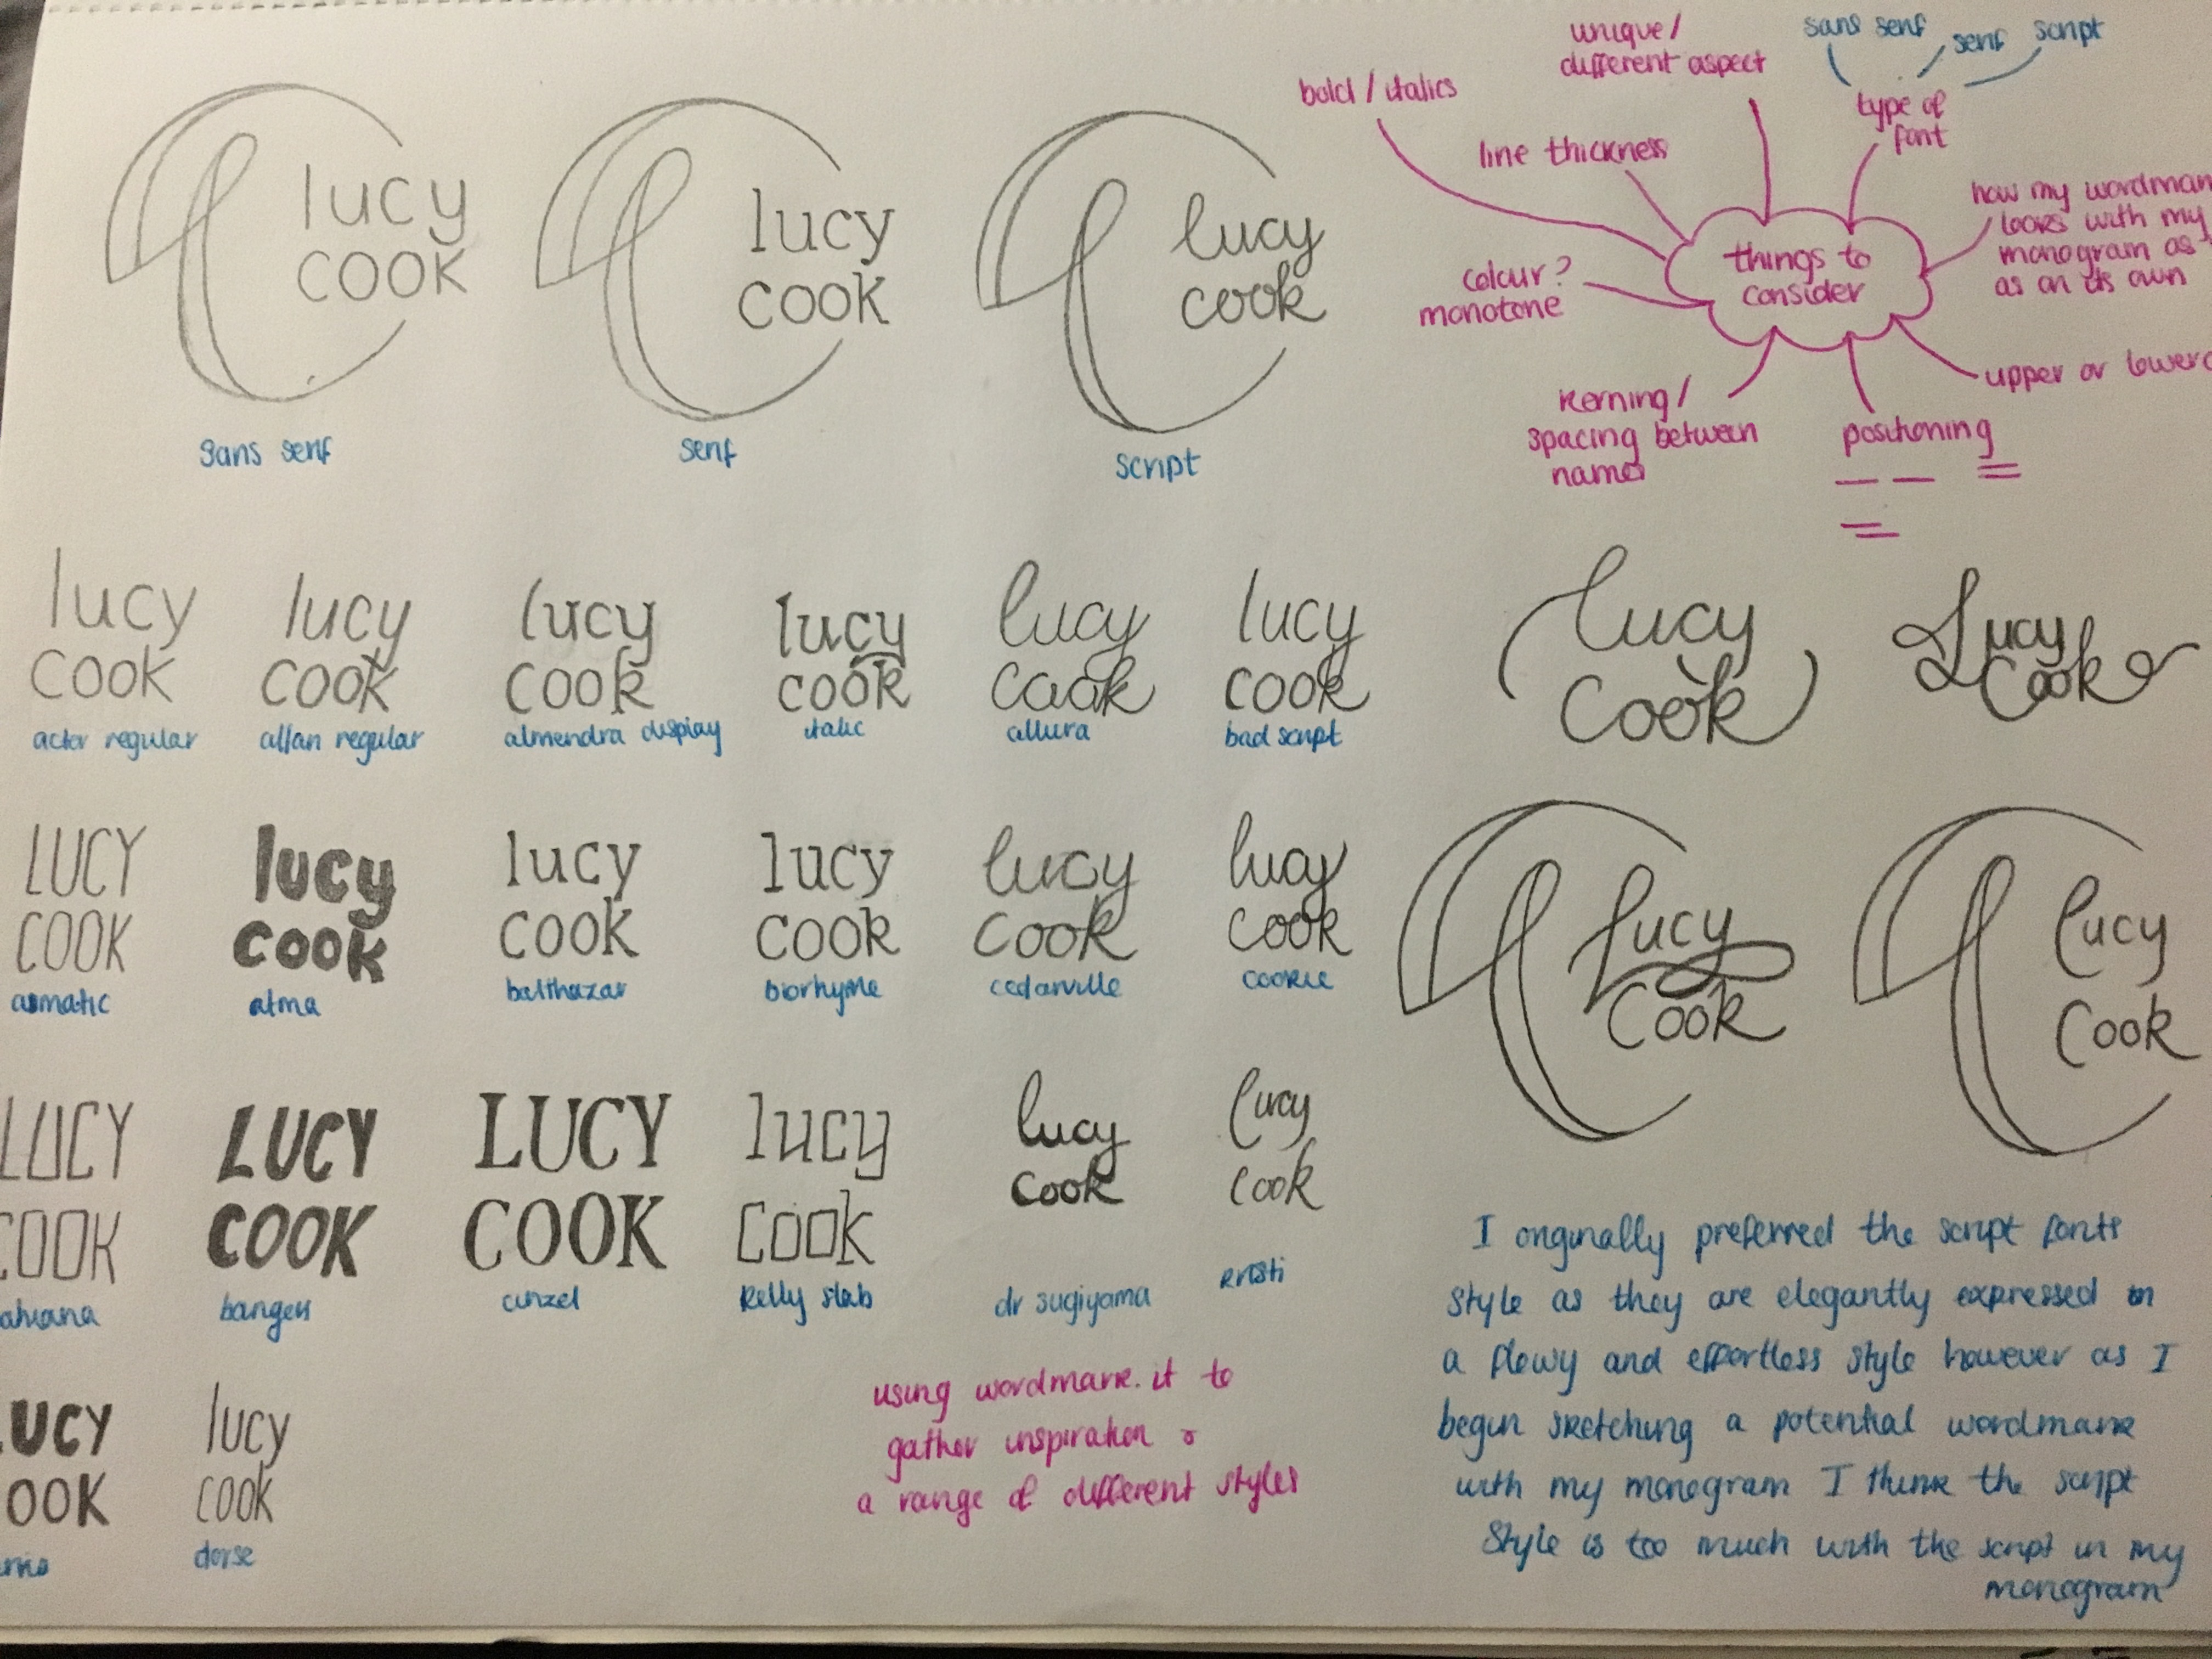 lucy
cook
sans serif
lucy
cook
serif
lucy
cook
script
bold / italics
unique/
different aspect
sans serif
serif
script
type of
font
line thickness
how my wordmar
looks with my
monogram as
as on its own
things to
consider
colour?
monotone
upper or lower
kerning/
spacing between
names
positioning
lucy
cook
actor regular
lucy
cook
allan regular
lucy
cook
almendra display
lucy
cook
italic
lucy
cook
allura
lucy
cook
bad script
lucy
Cook
Lucy
Cook
LUCY
COOK
lucy
cook
atma
lucy
cook
balthazar
lucy
cook
biorhyme
lucy
cook
cedarville
lucy
cook
cookie
Lucy
Cook
Lucy
Cook
LUCY
COOK
LUCY
COOK
bangers
LUCY
COOK
cinzel
lucy
cook
kelly slab
lucy
cook
dr sugiyama
lucy
cook
UCY
OOK
lucy
cook
dorse
using wordmark.it to
gather inspiration &
a range of different styles
I originally preferred the script fonts
style as they are elegantly expressed in
a flowy and effortless style however as I
begun sketching a potential wordmark
with my monogram I think the script
style is too much with the script in my
monogram